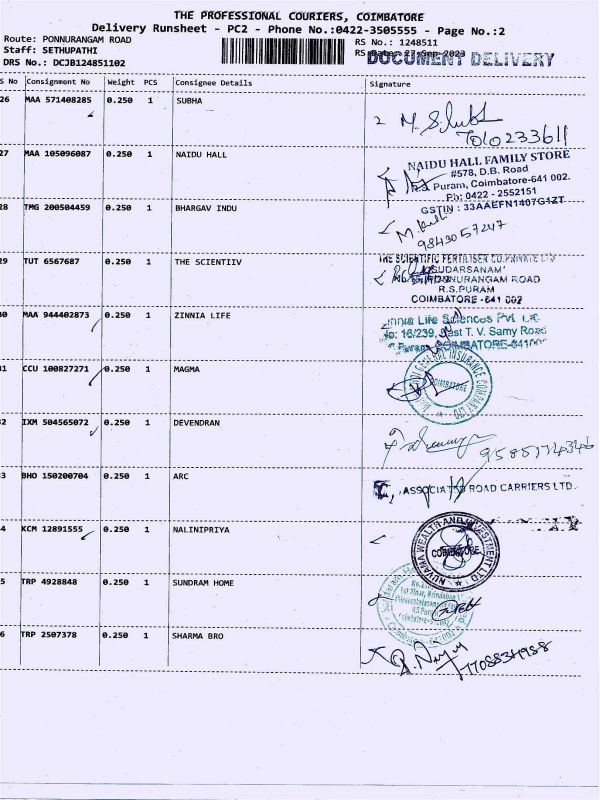 THE PROFESSIONAL COURIERS, COIMBATORE
Delivery Runsheet - PC2 - Phone No.:0422-3505555 - Page No.:2
Route: PONNURANGAM ROAD
RS No.: 1248511
Staff: SETHUPATHI
RS Date: 27-Sep-2023
DOCUMENT DELIVERY
DRS No.: DCJB124851102
S No Consignment No Weight PCS Consignee Details Signature
26 MAA 571408285 0.250 1 SUBHA
7010233611
27 MAA 105096087 0.250 1 NAIDU HALL
NAIDU HALL FAMILY STORE
#578, D.B. Road
Puram, Coimbatore-641 002.
Ph: 0422 - 2552151
GSTIN : 33AAEFN1407G1ZT
28 TMG 200504459 0.250 1 BHARGAV INDU
9843057247
29 TUT 6567687 0.250 1 THE SCIENTIIV
THE SCIENTIFIC FERTILISER CO.PRIVATE LTD
SUDARSANAM'
ROAD
R.S.PURAM
COIMBATORE -641 002
30 MAA 944402873 0.250 1 ZINNIA LIFE
innia Life Sciences Pvt
16/239, East T. V. Samy Road
31 CCU 100827271 0.250 1 MAGMA
GENERAL INSURANCE COMPANY LTD
COIMBATORE
32 IXM 504565072 0.250 1 DEVENDRAN
33 BHO 150200704 0.250 1 ARC
ASSOCIATED ROAD CARRIERS LTD
34 KCM 12891555 0.250 1 NALINIPRIYA
NUVAMA WEALTH AND INVESTMENT LTD
COIMBATORE
35 TRP 4928848 0.250 1 SUNDRAM HOME
36 TRP 2507378 0.250 1 SHARMA BRO